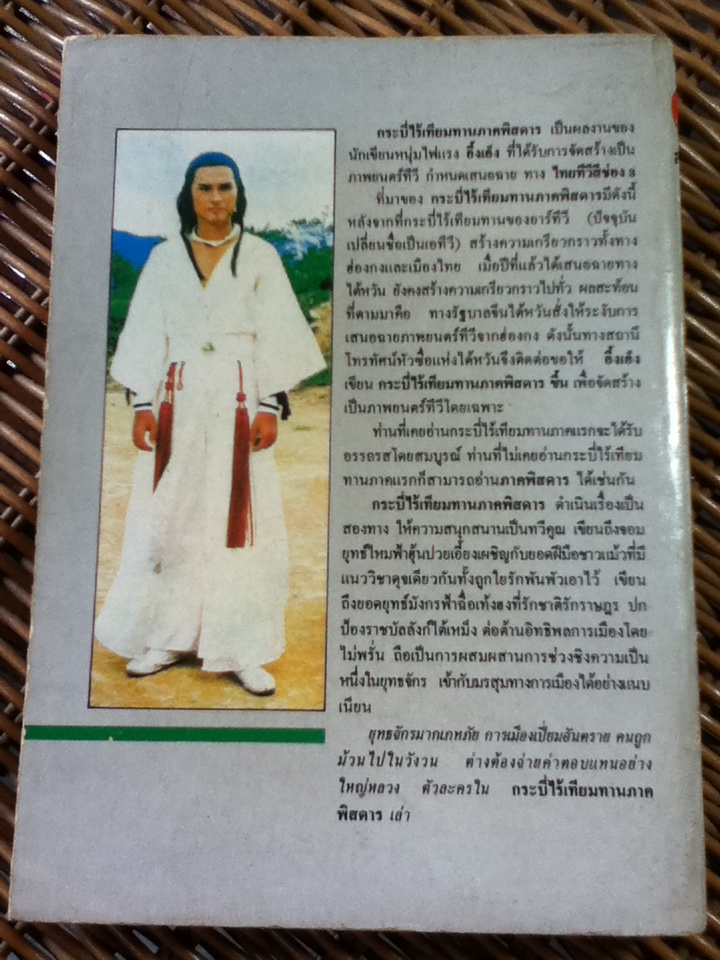 กระบี่ไร้เทียมทานภาคพิสดาร เป็นผลงานของ
นักเขียนหนุ่มไฟแรง อึ้งเอ็ง ที่ได้รับการจัดสร้างเป็น
ภาพยนตร์ทีวี กำหนดเสนอฉาย ทาง ไทยทีวีสีช่อง 3
ที่มาของ กระบี่ไร้เทียมทานภาคพิสดารมีดังนี้
หลังจากที่กระบี่ไร้เทียมทานของอาร์ทีวี (ปัจจุบัน
เปลี่ยนชื่อเป็นเอทีวี) สร้างความเกรียวกราวทั้งทาง
ฮ่องกงและเมืองไทย เมื่อปีที่แล้วได้เสนอฉายทาง
ไต้หวัน ยังคงสร้างความเกรียวกราวไปทั่ว ผลสะท้อน
ที่ตามมาคือ ทางรัฐบาลจีนไต้หวันสั่งให้ระงับการ
เสนอฉายภาพยนตร์ทีวีจากฮ่องกง ดังนั้นทางสถานี
โทรทัศน์หัวซื่อแห่งไต้หวันจึงติดต่อขอให้ อึ้งเอ็ง
เขียน กระบี่ไร้เทียมทานภาคพิสดาร ขึ้น เพื่อจัดสร้าง
เป็นภาพยนตร์ทีวีโดยเฉพาะ
ท่านที่เคยอ่านกระบี่ไร้เทียมทานภาคแรกจะได้รับ
อรรถรสโดยสมบูรณ์ ท่านที่ไม่เคยอ่านกระบี่ไร้เทียม
ทานภาคแรกก็สามารถอ่านภาคพิสดาร ได้เช่นกัน
กระบี่ไร้เทียมทานภาคพิสดาร ดำเนินเรื่องเป็น
สองทาง ให้ความสนุกสนานเป็นทวีคูณ เขียนถึงจอม
ยุทธ์ไหมฟ้าฮุ้นปวยเอี้ยงเผชิญกับยอดฝีมือชาวแม้วที่มี
แนววิชาดุจเดียวกันทั้งถูกใยรักพันพัวเอาไว้ เขียน
ถึงยอดยุทธ์มังกรฟ้าฉื่อเท้งฮงที่รักชาติรักราษฎร ปก
ป้องราชบัลลังก์ไต้เหม็ง ต่อต้านอิทธิพลการเมืองโดย
ไม่พรั่น ถือเป็นการผสมผสานการช่วงชิงความเป็น
หนึ่งในยุทธจักร เข้ากับมรสุมทางการเมืองได้อย่างแนบ
เนียน
ยุทธจักรมากเภทภัย การเมืองเปี่ยมอันตราย คนถูก
ม้วนไปในวังวน ต่างต้องจ่ายค่าตอบแทนอย่าง
ใหญ่หลวง ตัวละครใน กระบี่ไร้เทียมทานภาค
พิสดาร เล่า